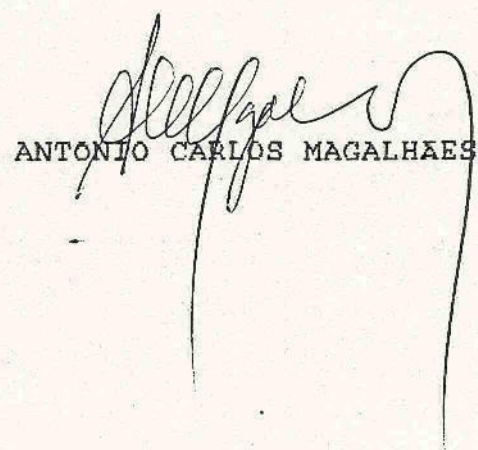 ANTONIO CARLOS MAGALHÃES